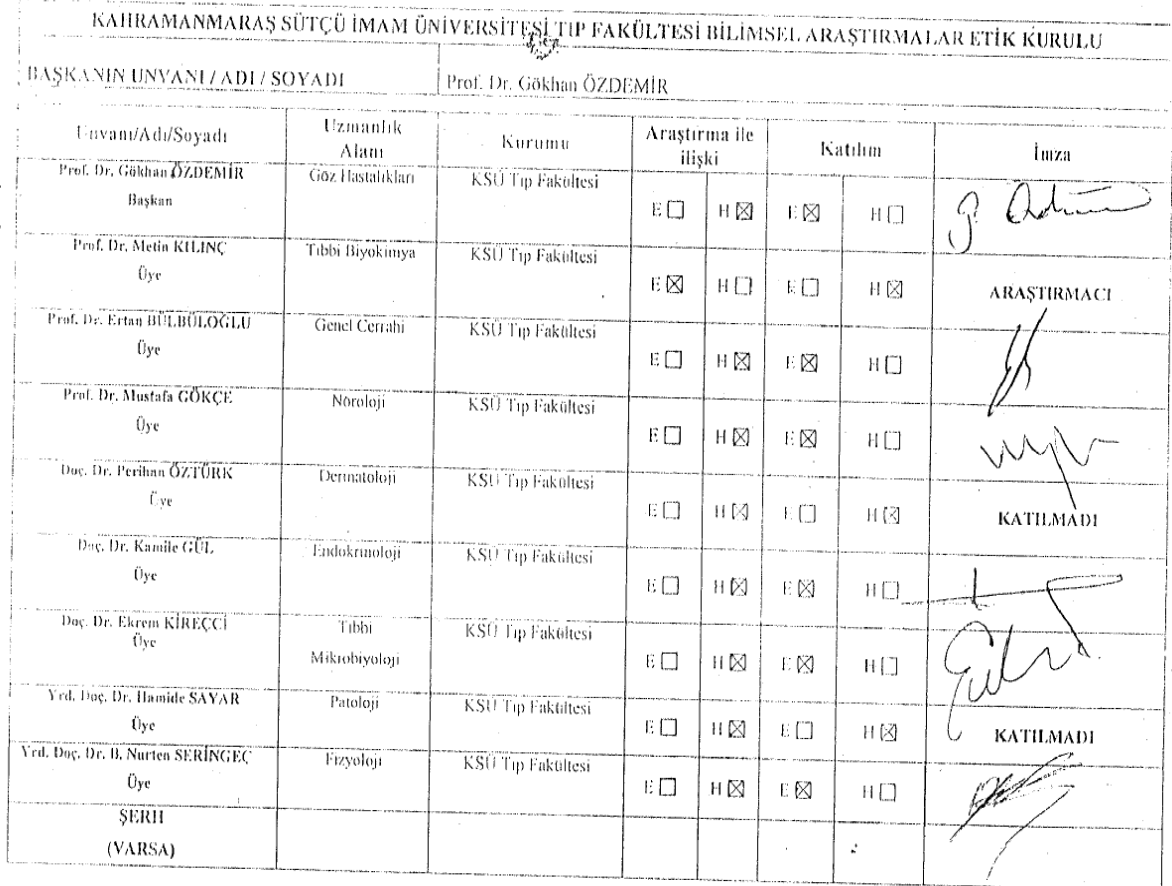 KAHRAMANMARAŞ SÜTÇÜ İMAM ÜNİVERSİTESİ TIP FAKÜLTESİ BİLİMSEL ARAŞTIRMALAR ETİK KURULU
BAŞKANIN UNVANI / ADI / SOYADI Prof. Dr. Gökhan ÖZDEMİR
Unvanı/Adı/Soyadı Uzmanlık Alanı Kurumu Araştırma ile ilişki Katılım İmza
Prof. Dr. Gökhan ÖZDEMİR Göz Hastalıkları KSÜ Tıp Fakültesi
Başkan E ☐ H ☒ E ☒ H ☐
Prof. Dr. Metin KILINÇ Tıbbi Biyokimya KSÜ Tıp Fakültesi
Üye E ☒ H ☐ E ☐ H ☒ ARAŞTIRMACI
Prof. Dr. Ertan BÜLBÜLOĞLU Genel Cerrahi KSÜ Tıp Fakültesi
Üye E ☐ H ☒ E ☒ H ☐
Prof. Dr. Mustafa GÖKÇE Nöroloji KSÜ Tıp Fakültesi
Üye E ☐ H ☒ E ☒ H ☐
Doç. Dr. Perihan ÖZTÜRK Dermatoloji KSÜ Tıp Fakültesi
Üye E ☐ H ☒ E ☐ H ☒ KATILMADI
Doç. Dr. Kamile GÜL Endokrinoloji KSÜ Tıp Fakültesi
Üye E ☐ H ☒ E ☒ H ☐
Doç. Dr. Ekrem KİREÇCİ Tıbbi KSÜ Tıp Fakültesi
Üye Mikrobiyoloji E ☐ H ☒ E ☒ H ☐
Yrd. Doç. Dr. Hamide SAYAR Patoloji KSÜ Tıp Fakültesi
Üye E ☐ H ☒ E ☐ H ☒ KATILMADI
Yrd. Doç. Dr. B. Nurten SERİNGEÇ Fizyoloji KSÜ Tıp Fakültesi
Üye E ☐ H ☒ E ☒ H ☐
ŞERH
(VARSA)